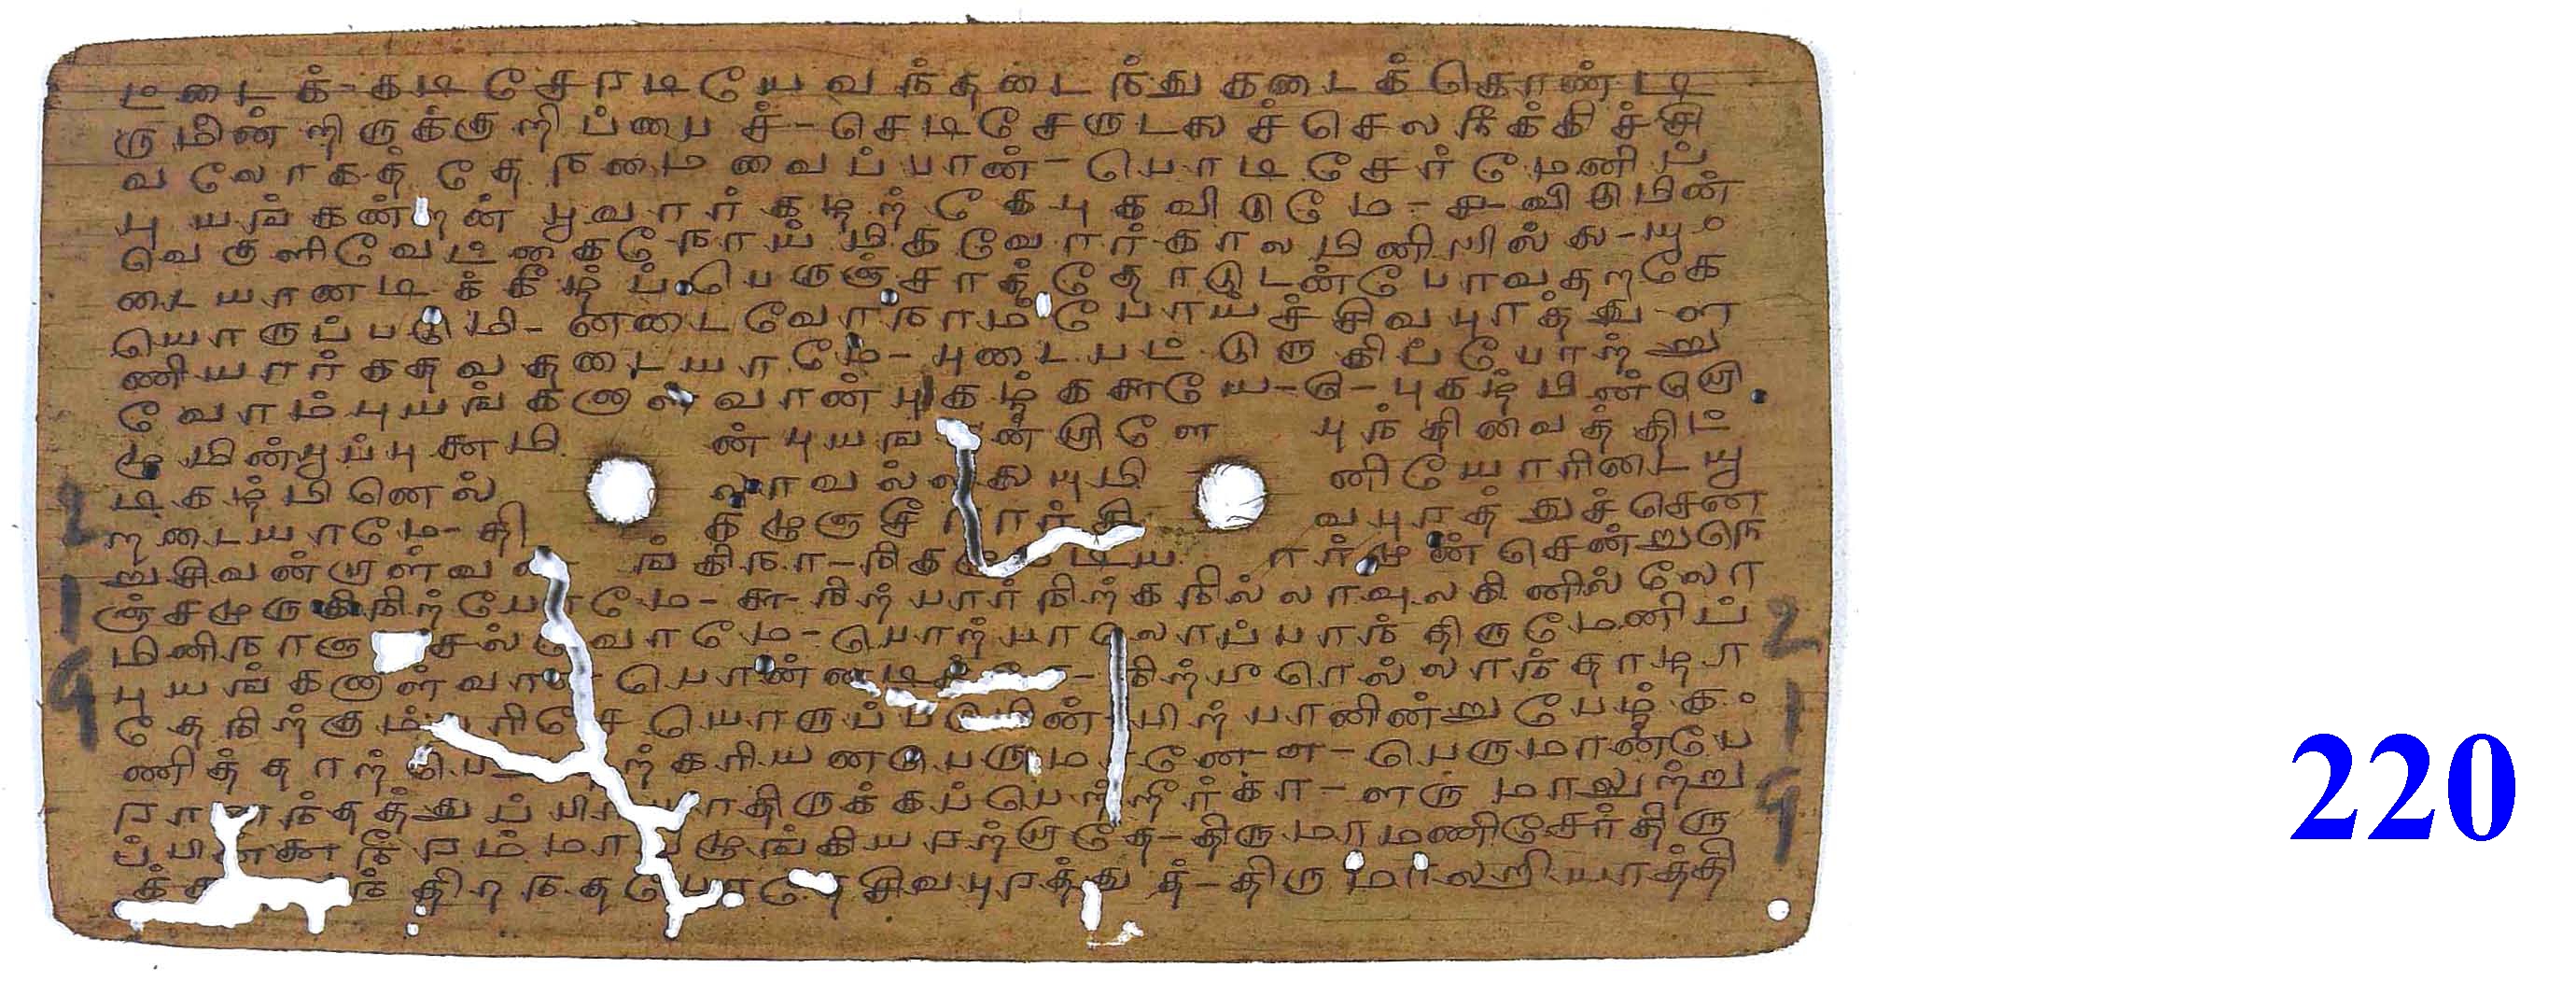 ட்டைக்-கடி சேரடியே வந்தடைந்து கடைக் கொண்டி
ருமின் றிருக்குறிப்பைச்-செடிசேருடலைச் செலநீக்கிச்சி
வலோகத் தே நமை வைப்பான்-பொடி சேர் மேனிப்
புயங்கன்றன் பூவார் கழற் கே புகவிடுமே-ச-விடுமின்
வெகுளிவேட்கைநோய் மிகவோர்கால மினியில்லை-யு
டையானடிக்கீழ்ப்பெருஞ்சாத்தோடுடன்போவதற்கே
யொருப்படுமி-னடைவோநாம்போய்ச்சிவபுரத்துள
ணியார் கதவதடையாமே-புடைபட் டுருகிப் போற்று
வோம்புயங்கனாள்வான்புகழ்களையே-ரு-புகழ்மின்றொ
ழுமின்பூப்புனைமி ன்புயங் ன்றாளே புந்திவைத்திட்
டிகழ்மினெல் லாவல்லலையுமி னியோரிடையூ
றடையாமே-தி கழுஞ்சீரார்சி வபுரத்துச்சென்
றுசிவன்றாள்வ ங்கிநா-நிகழு டிய ார்முன்சென்றுநெ
ஞ்சமுருகிநிற்போமே-சா-நிற்பார்நிற்கநில்லாவுலகினில்லோ
மினிநாஞ் செல்வோமே-பொற்பாலொப்பாந்திருமேனிப்
புயங்கனாள்வான் பொன்னடிக்கே-நிற்பீரெல்லாந்தாழா
தேநிற்கும்பரிசே யொருப்படுமின்-பிற்பானின்றுபேழ்க
ணித்தாற்பெ ற்கரியனபெருமானே-எ-பெருமான்பே
ரானந்தத்துப்பிரியாதிருக்கப்பெற்றீர்கா-ளருமாலுற்று
ப்பின்னைநீரம்மாவழுங்கியரற்றாதே-திருமாமணிசேர்திரு
க்க ந்திறந்தபோதேசிவபுரத்துத்-திருமாலறியாத்தி
219
219
220